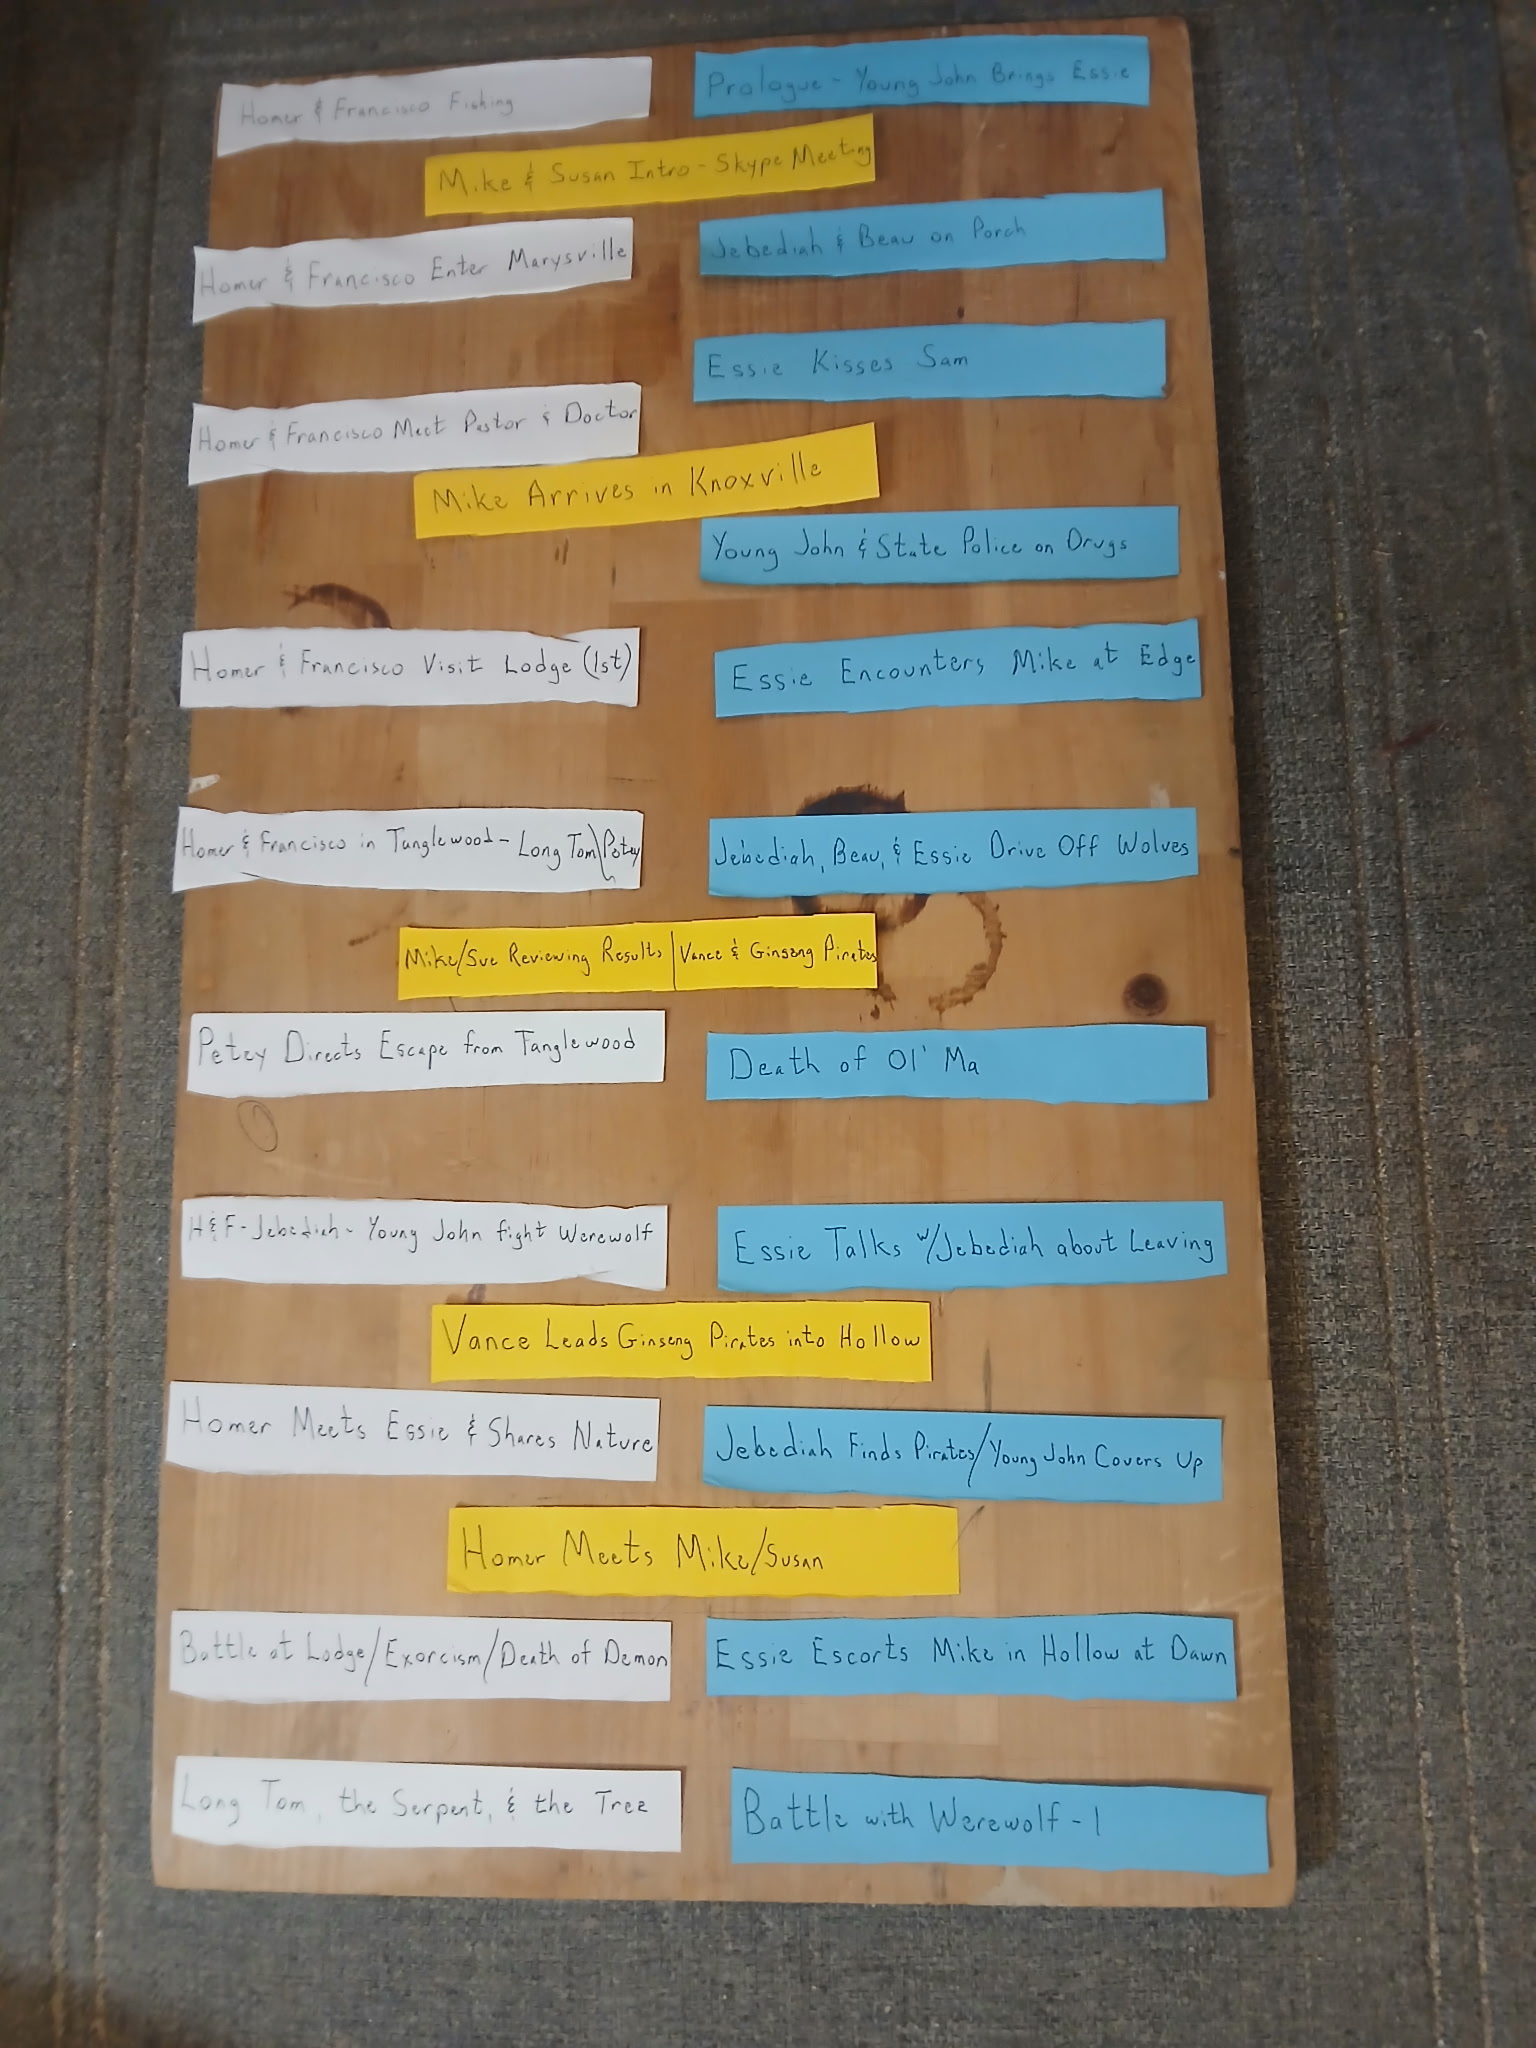 Homer & Francisco Fishing
Prologue - Young John Brings Essie
Mike & Susan Intro - Skype Meeting
Jebediah & Beau on Porch
Homer & Francisco Enter Marysville
Essie Kisses Sam
Homer & Francisco Meet Pastor & Doctor
Mike Arrives in Knoxville
Young John & State Police on Drugs
Homer & Francisco Visit Lodge (1st)
Essie Encounters Mike at Edge
Homer & Francisco in Tanglewood - Long Tom\Petey
Jebediah, Beau, & Essie Drive Off Wolves
Mike/Sue Reviewing Results | Vance & Ginseng Pirates
Petey Directs Escape from Tanglewood
Death of Ol' Ma
H&F - Jebediah - Young John fight Werewolf
Essie Talks w/Jebediah about Leaving
Vance Leads Ginseng Pirates into Hollow
Homer Meets Essie & Shares Nature
Jebediah Finds Pirates/Young John Covers Up
Homer Meets Mike/Susan
Battle at Lodge/Exorcism/Death of Demon
Essie Escorts Mike in Hollow at Dawn
Long Tom, the Serpent, & the Tree
Battle with Werewolf - 1